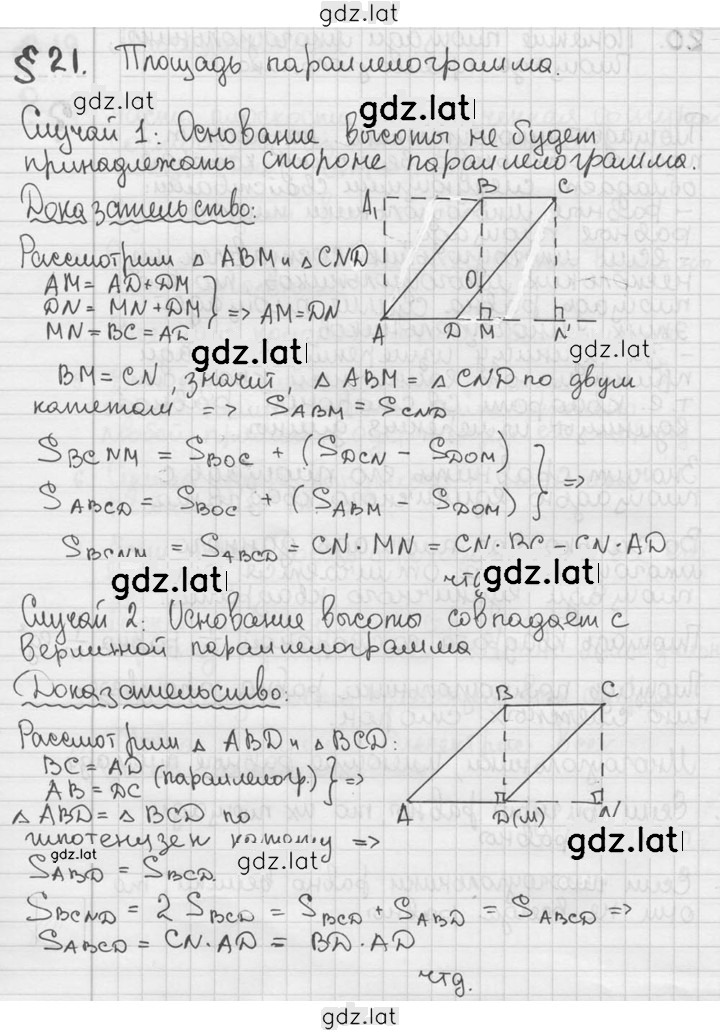 gdz.lat
§ 21. Площадь параллелограмма.
gdz.lat
gdz.lat
Случай 1: Основание высоты не будет
принадлежать стороне параллелограмма.
Доказательство:
A₁ B C
Рассмотрим △ ABM и △ CND
AM = AD + DM
DN = MN + DM } => AM = DN
MN = BC = AD
O
A D M N
gdz.lat
gdz.lat
BM = CN, значит, △ ABM = △ CND по двум
катетам => S_ABM = S_CND
S_BCNM = S_BOC + (S_DCN − S_DOM)
S_ABCD = S_BOC + (S_ABM − S_DOM) } =>
S_BCNM = S_ABCD = CN · MN = CN · BC = CN · AD
gdz.lat
gdz.lat
Случай 2: Основание высоты совпадает с
вершиной параллелограмма
Доказательство:
B C
Рассмотрим △ ABD и △ BCD:
BC = AD
AB = DC (параллелогр.) } =>
A D(M) N
△ ABD = △ BCD по
гипотенузе и катету =>
gdz.lat
gdz.lat
gdz.lat
S_ABD = S_BCD.
S_BCND = 2 S_BCD = S_BCD + S_ABD = S_ABCD =>
S_ABCD = CN · AD = BD · AD
чтд.
gdz.lat